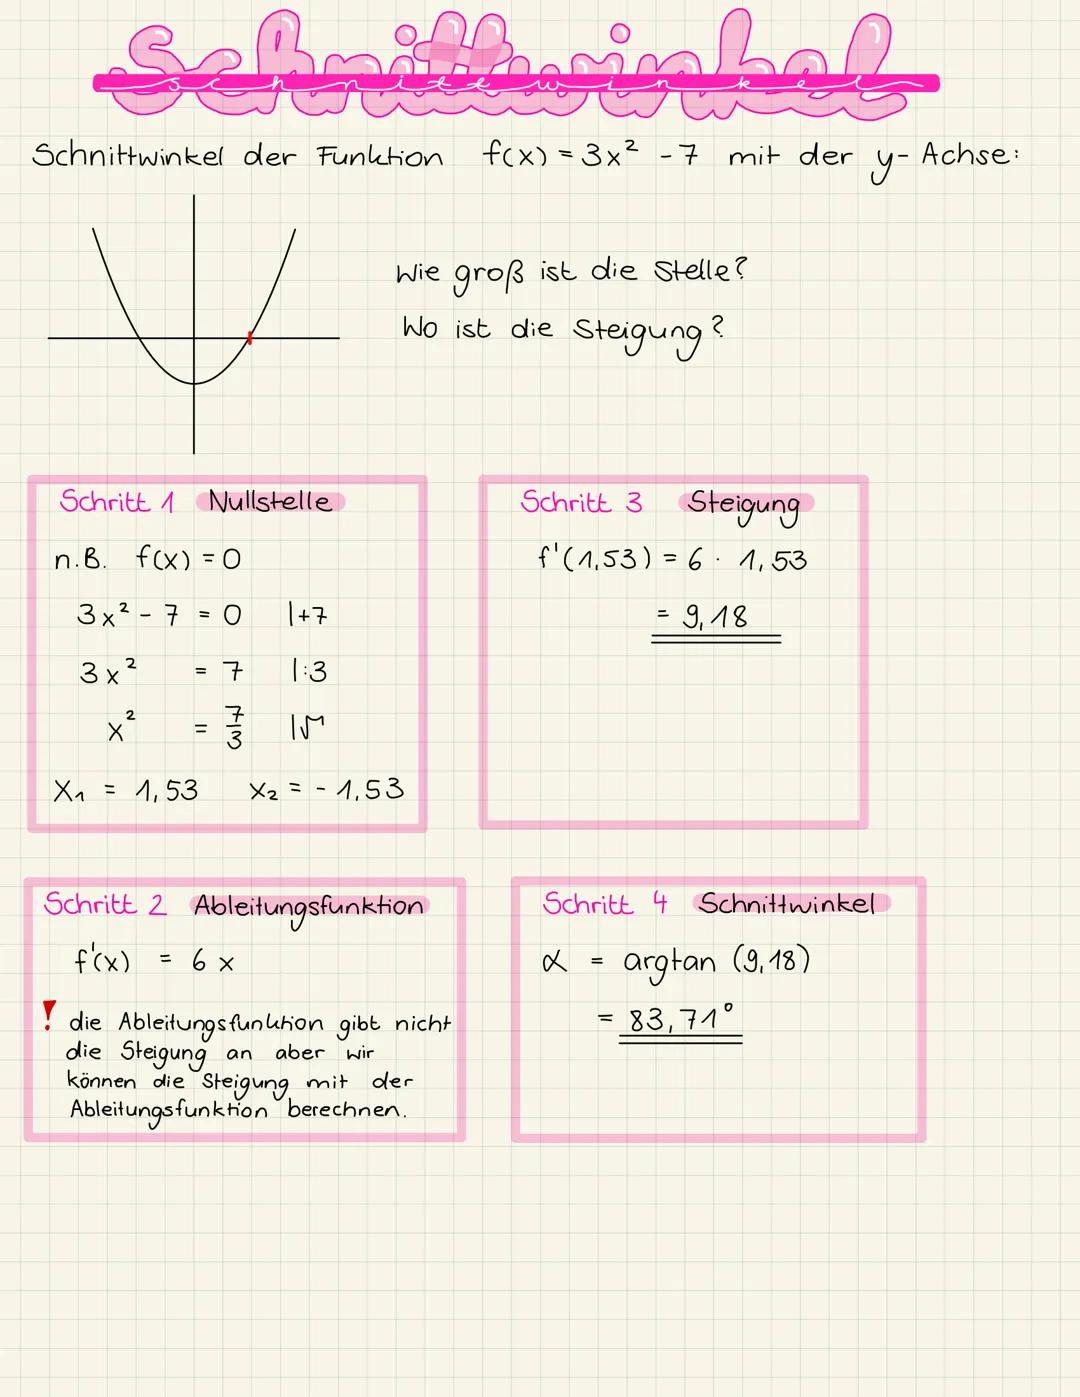 Schnittwinkel
schnittwinkel
Schnittwinkel der Funktion f(x) = 3x² - 7 mit der y-Achse:
Wie groß ist die Stelle?
Wo ist die Steigung?
Schritt 1 Nullstelle
n.B. f(x) = 0
3x² - 7 = 0 |+7
3x² = 7 |:3
x² = 7/3 |√
x₁ = 1,53 x₂ = - 1,53
Schritt 3 Steigung
f'(1,53) = 6 · 1,53
= 9,18
Schritt 2 Ableitungsfunktion
f'(x) = 6x
! die Ableitungsfunktion gibt nicht
die Steigung an aber wir
können die Steigung mit der
Ableitungsfunktion berechnen.
Schritt 4 Schnittwinkel
α = argtan (9,18)
= 83,71°